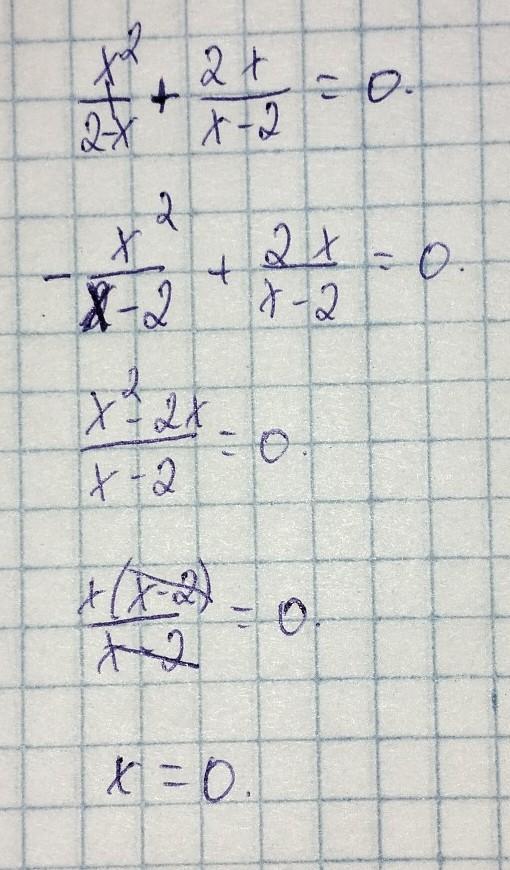 x²/(2-x) + 2x/(x-2) = 0.
- x²/(x-2) + 2x/(x-2) = 0.
(x²-2x)/(x-2) = 0.
x(x-2)/(x-2) = 0.
x = 0.